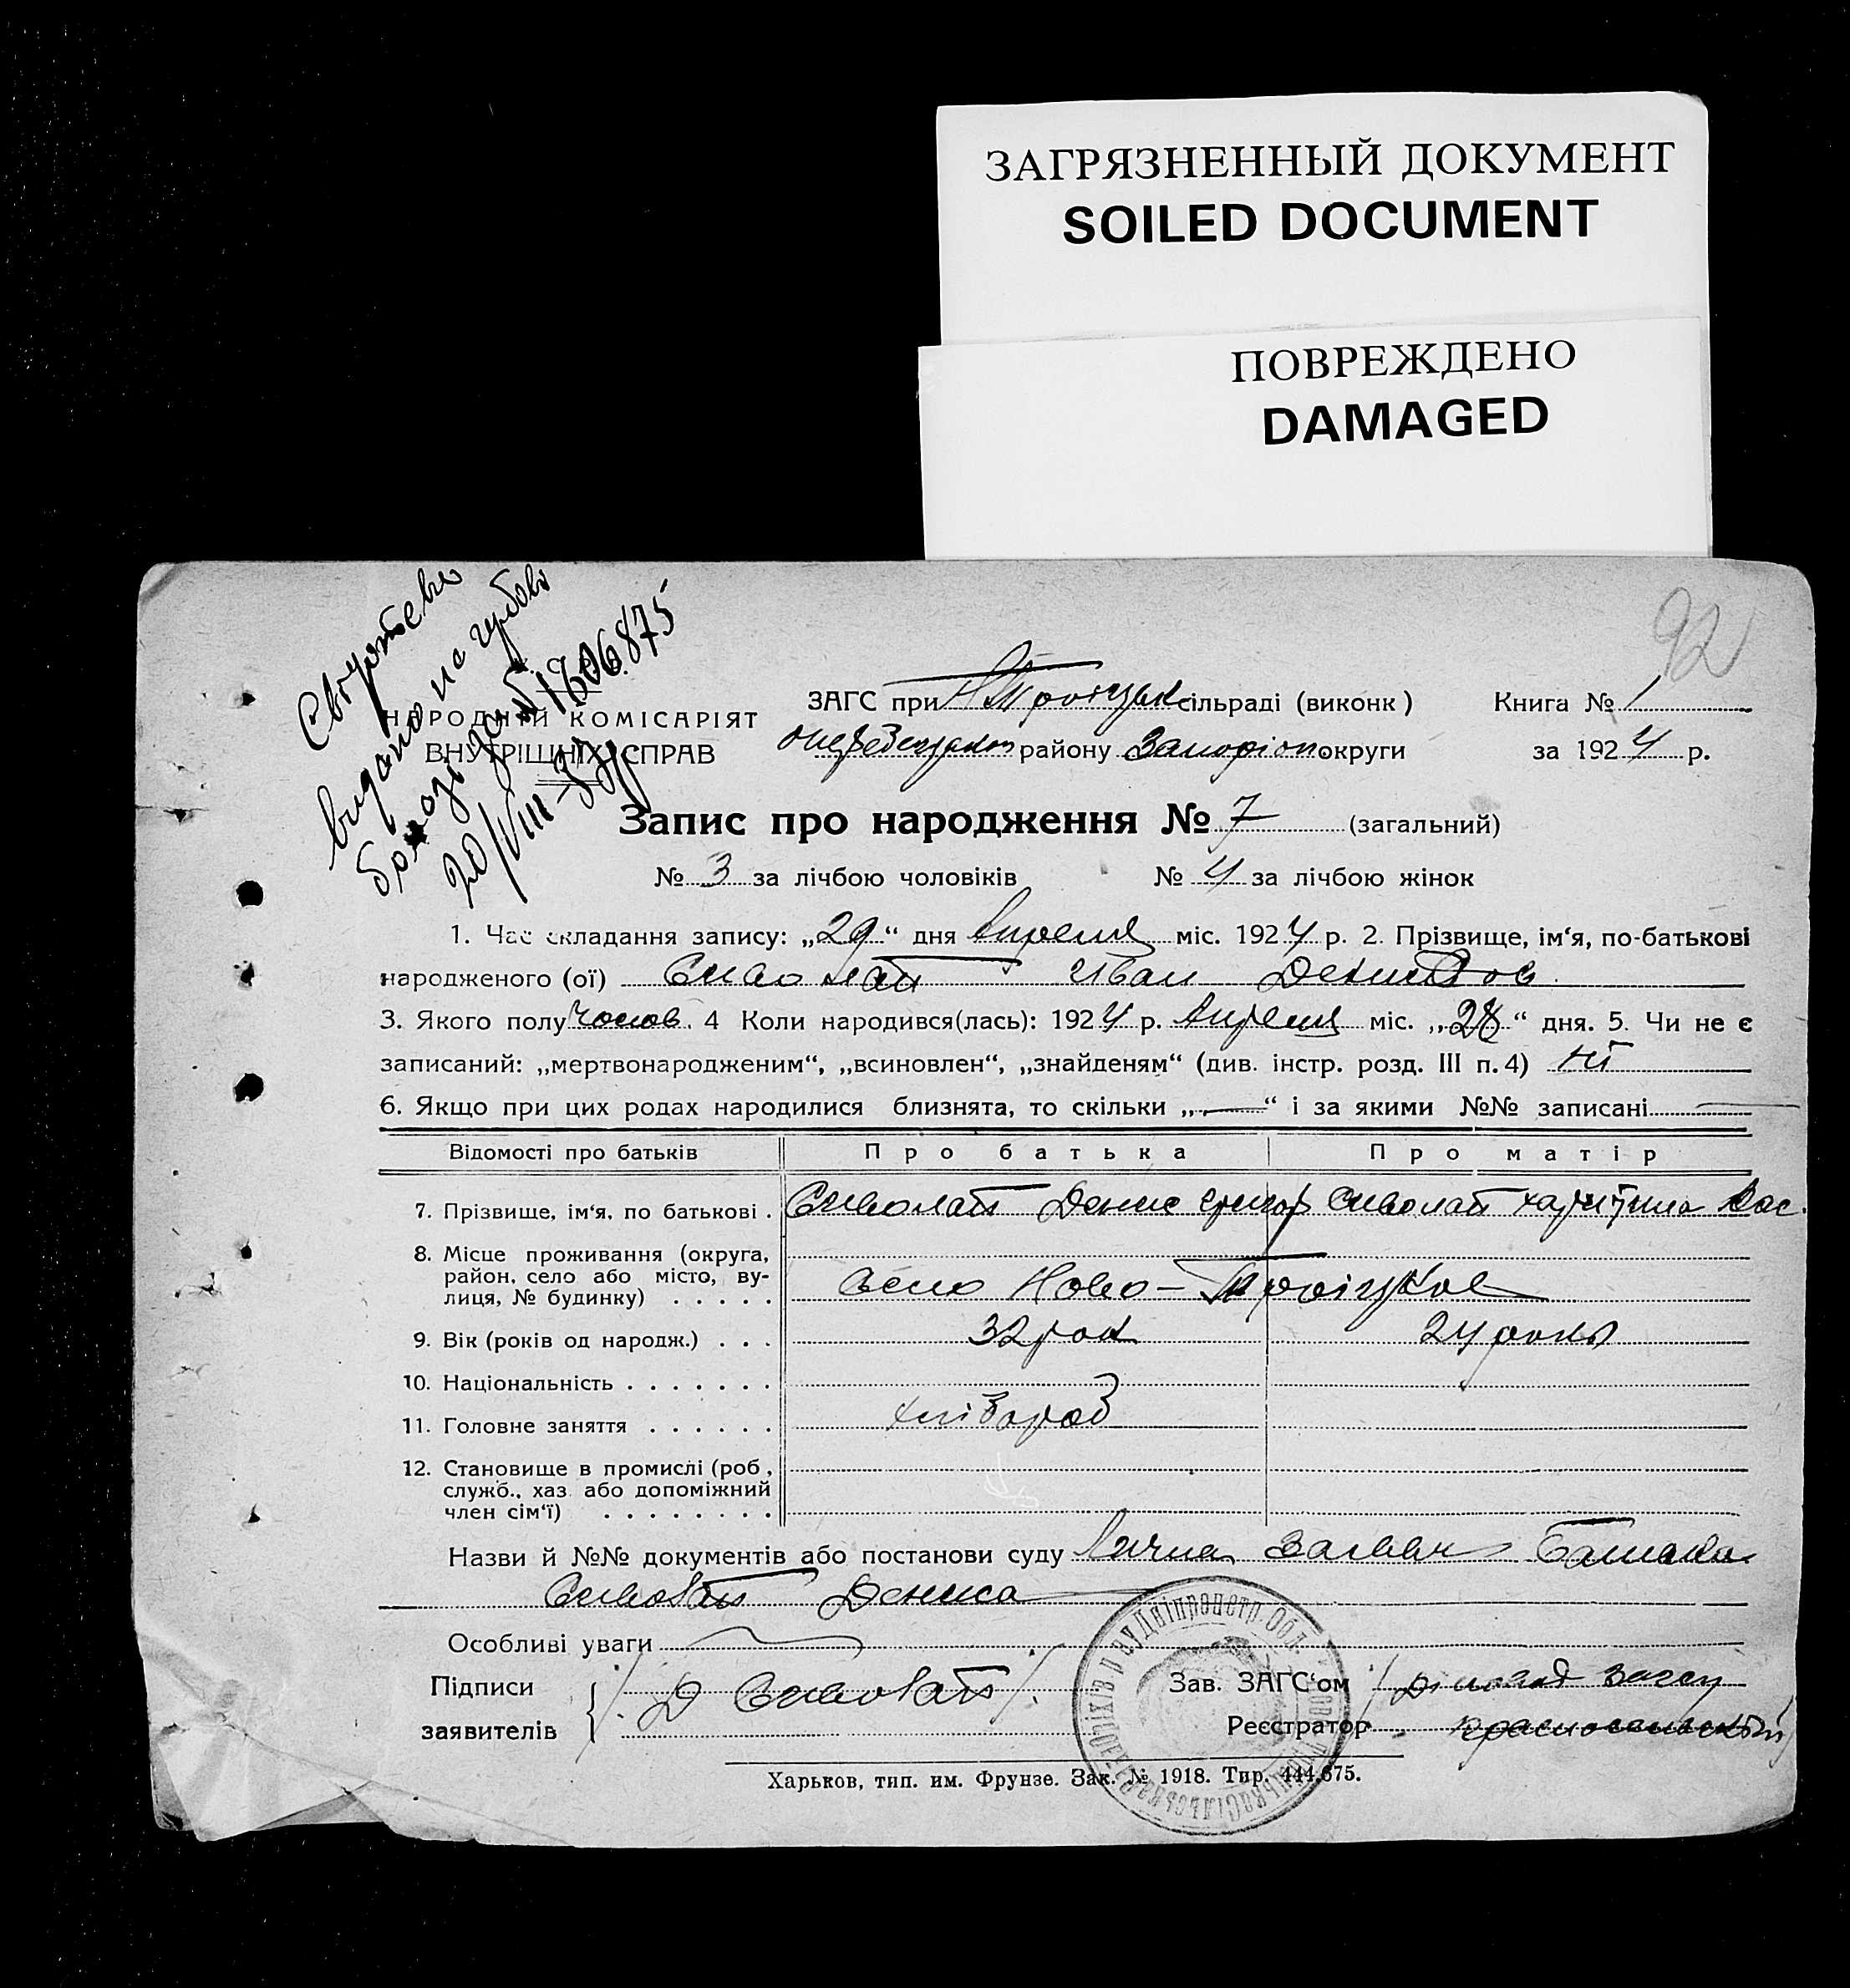 ЗАГРЯЗНЕННЫЙ ДОКУМЕНТ
SOILED DOCUMENT
ПОВРЕЖДЕНО
DAMAGED
92
видано на
№ 1606875
20/VIII-37
НАРОДНІЙ КОМІСАРІЯТ
ВНУТРІШНІХ СПРАВ
ЗАГС при Н Троіцьк сільраді (виконк) Книга № 1
району Запоріж округи за 1924 р.
Запис про народження № 7 (загальний)
№ 3 за лічбою чоловіків № 4 за лічбою жінок
1. Час складання запису: „29“ дня Апреля міс. 1924 р. 2. Прізвище, ім‘я, по-батькові
народженого (ої) Сиволап Іван Денисов
3. Якого полу чолов. 4 Коли народився(лась): 1924 р. Апреля міс. „28“ дня. 5. Чи не є
записаний: „мертвонародженим“, „всиновлен“, „знайденям“ (див. інстр. розд. III п. 4) ні
6. Якщо при цих родах народилися близнята, то скільки „—“ і за якими №№ записані —
Відомості про батьків Про батька Про матір
7. Прізвище, ім‘я, по батькові . Сиволап Денис Григор Сиволап Харитина Вас.
8. Місце проживання (округа,
район, село або місто, ву-
лиця, № будинку) . . . . . село Ново-Троіцкое
9. Вік (років од народж.) . . . 32 рок 24 роки
10. Національність . . . . . . .
11. Головне заняття . . . . . . хлібороб
12. Становище в промислі (роб.,
служб., хаз. або допоміжний
член сім‘ї) . . . . . . . .
Назви й №№ документів або постанови суду Лична заява Батька
Сиволап Дениса
Особливі уваги
Підписи Д Сиволап Зав. ЗАГС‘ом
заявителів Реєстратор
Харьков, тип. им. Фрунзе. Зак. № 1918. Тир. 444.675.
Дніпропетр. Обл.